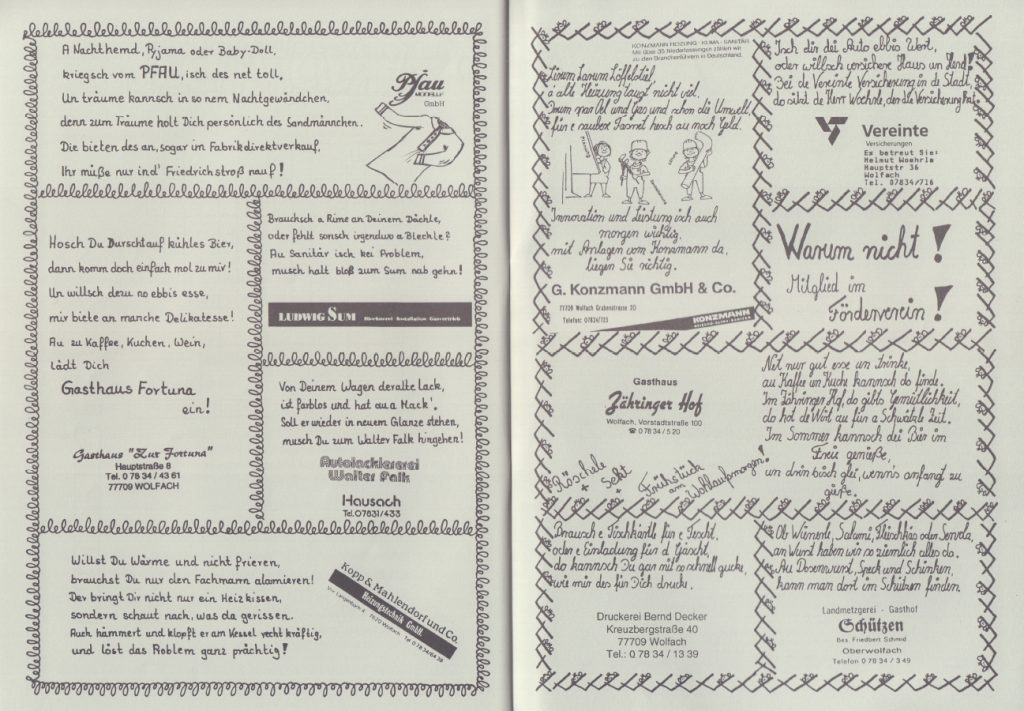 A Nachthemd, Pyjama oder Baby-Doll,
kriegsch vom PFAU, isch des net toll,
Un träume kannsch in so nem Nachtgewändchen,
denn zum Träume holt Dich persönlich des Sandmännchen.
Die bieten des an, sogar im Fabrikdirektverkauf,
Ihr müße nur ind' Friedrichstroß nauf!
Pfau
MODELLE
GmbH
Hosch Du Durscht auf kühles Bier,
dann komm doch einfach mol zu mir!
Un willsch dezu no ebbis esse,
mir biete an manche Delikatesse!
Au zu Kaffee, Kuchen, Wein,
lädt Dich
Gasthaus Fortuna
ein!
Gasthaus "Zur Fortuna"
Hauptstraße 8
Tel. 0 78 34 / 43 61
77709 WOLFACH
Brauchsch a Rinne an Deinem Dächle,
oder fehlt sonsch irgendwo a Blechle?
Au Sanitär isch kei Problem,
musch halt bloß zum Sum nab gehn!
LUDWIG SUM Blechnerei Installation Gasvertrieb
Von Deinem Wagen der alte Lack,
ist farblos und hat au a Mack'.
Soll er wieder in neuem Glanze stehen,
musch Du zum Walter Falk hingehen!
Autolackiererei
Walter Falk
Hausach
Tel. 07831/433
Willst Du Wärme und nicht frieren,
brauchst Du nur den Fachmann alarmieren!
Der bringt Dir nicht nur ein Heizkissen,
sondern schaut nach, was da gerissen.
Auch hämmert und klopft er am Kessel recht kräftig,
und löst das Problem ganz prächtig!
Kopp & Mahlendorf und Co.
Heizungstechnik GmbH
7620 Wolfach
KONZMANN HEIZUNG · KLIMA · SANITÄR
Mit über 35 Niederlassungen zählen wir
zu den Branchenführern in Deutschland.
Lirum Larum Löffelstiel,
a alte Heizung taugt nicht viel.
Drum spar Öl und Gas und schon die Umwelt,
für e saubre Fasnet hesch au noch Geld.
Innovation und Leistung isch auch
morgen wichtig,
mit Anlagen vom Konzmann da,
liegen Sie richtig.
G. Konzmann GmbH & Co.
77709 Wolfach Grabenstrasse 20
Telefon: 07834/725
KONZMANN
Isch dir dei Auto ebbis Wert,
oder willsch versichere Haus un Herd!
Bei de Vereinte Versicherung in de Stadt,
do sitzt de Herr Woehrle, der die Versicherung hat.
Vereinte
Versicherungen
Es betreut Sie:
Helmut Woehrle
Hauptstr 36
Wolfach
Tel. 07834/716
Warum nicht!
Mitglied im
Förderverein!
Gasthaus
Zähringer Hof
Wolfach, Vorstadtstraße 100
☎ 0 78 34 / 5 20
Net nur gut esse un trinke,
au Kaffee un Kuche kannsch do finde.
Im Zähringer Hof, do gibts Gemütlichkeit,
do hot de Wirt au für a Schwätzle Zeit.
Im Sommer kannsch dei Bier im
Freie genieße,
un drin bisch glei, wenn's anfangt zu
gieße.
Röschele
+ Sekt
+ Frühstück
am Wohlaufmorgen!
Brauch e Tischkärtle für e Fescht,
oder e Einladung für d Gäscht,
do kannsch Du gar nit so schnell gucke,
wie mir des für Dich drucke.
Druckerei Bernd Decker
Kreuzbergstraße 40
77709 Wolfach
Tel.: 0 78 34 / 13 39
Ob Wienerl, Salami, Fleischkäs oder Servela,
an Wurst haben wir so ziemlich alles da.
Au Dosenwurst, Speck und Schinken,
kann man dort im Schützen finden.
Landmetzgerei - Gasthof
Schützen
Bes. Friedbert Schmid
Oberwolfach
Telefon 0 78 34 / 3 49